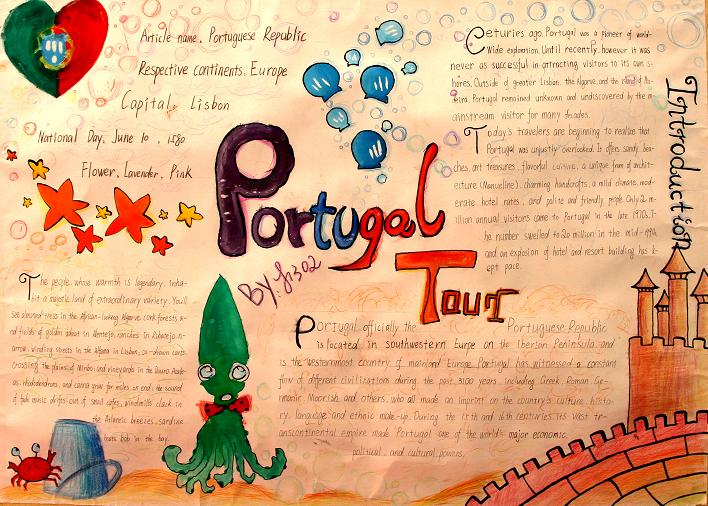 Article name. Portuguese Republic
Respective continents. Europe
Capital. Lisbon
National Day. June 10, 1580
Flower. Lavender, Pink
Portugal
Tour
By:
Introduction
Ceturies ago, Portugal was a pioneer of world-
wide exploration. Until recently, however it was
never as successful in attracting visitors to its own s-
hores. Outside of greater Lisbon, the Algarve, and the island of Ma-
deira, Portugal remained unknown and undiscovered by the m
ainstream visitor for many decades.
Today's travelers are beginning to realize that
Portugal was unjustly overlooked. It offers sandy bea-
ches, art treasures, flavorful cuisine, a unique form of archit-
ecture (Manueline), charming handcrafts, a mild climate, mod-
erate hotel rates, and polite and friendly people. Only 2 m-
illion annual visitors came to Portugal in the late 1970s. T-
he number swelled to 20 million in the mid-1990s
and an explosion of hotel and resort building has k-
ept pace.
The people, whose warmth is legendary, inha-
bit a majestic land of extraordinary variety. You'll
see almond trees in the African-looking Algarve, cork forests a-
nd fields of golden
ranches in Ribatejo, n-
arrow, winding streets in the Alfama in Lisbon, ox-drawn carts
crossing the plains of Minho, and vineyards in the Douro
rhododendrons, and canna grow for miles on end: the sound
of fado music drifts out of small cafes, windmills clack in
the Atlantic breezes, sardine
boats bob in the bay.
Portugal, officially the Portuguese Republic
is located in southwestern Eurpe on the Iberian Peninsula. and
is the westernmost country of mainland Europe. Portugal has witnessed a constant
flow of different civilizations during the past 3100 years, including Greek, Roman, Ge-
rmanic, Moorish and others, who all made an imprint on the country's culture, histo-
ry, language and ethnic make-up. During the 15th and 16th centuries, its vast tr-
anscontinental empire made Portugal one of the world's major economic,
political, and cultural powers.